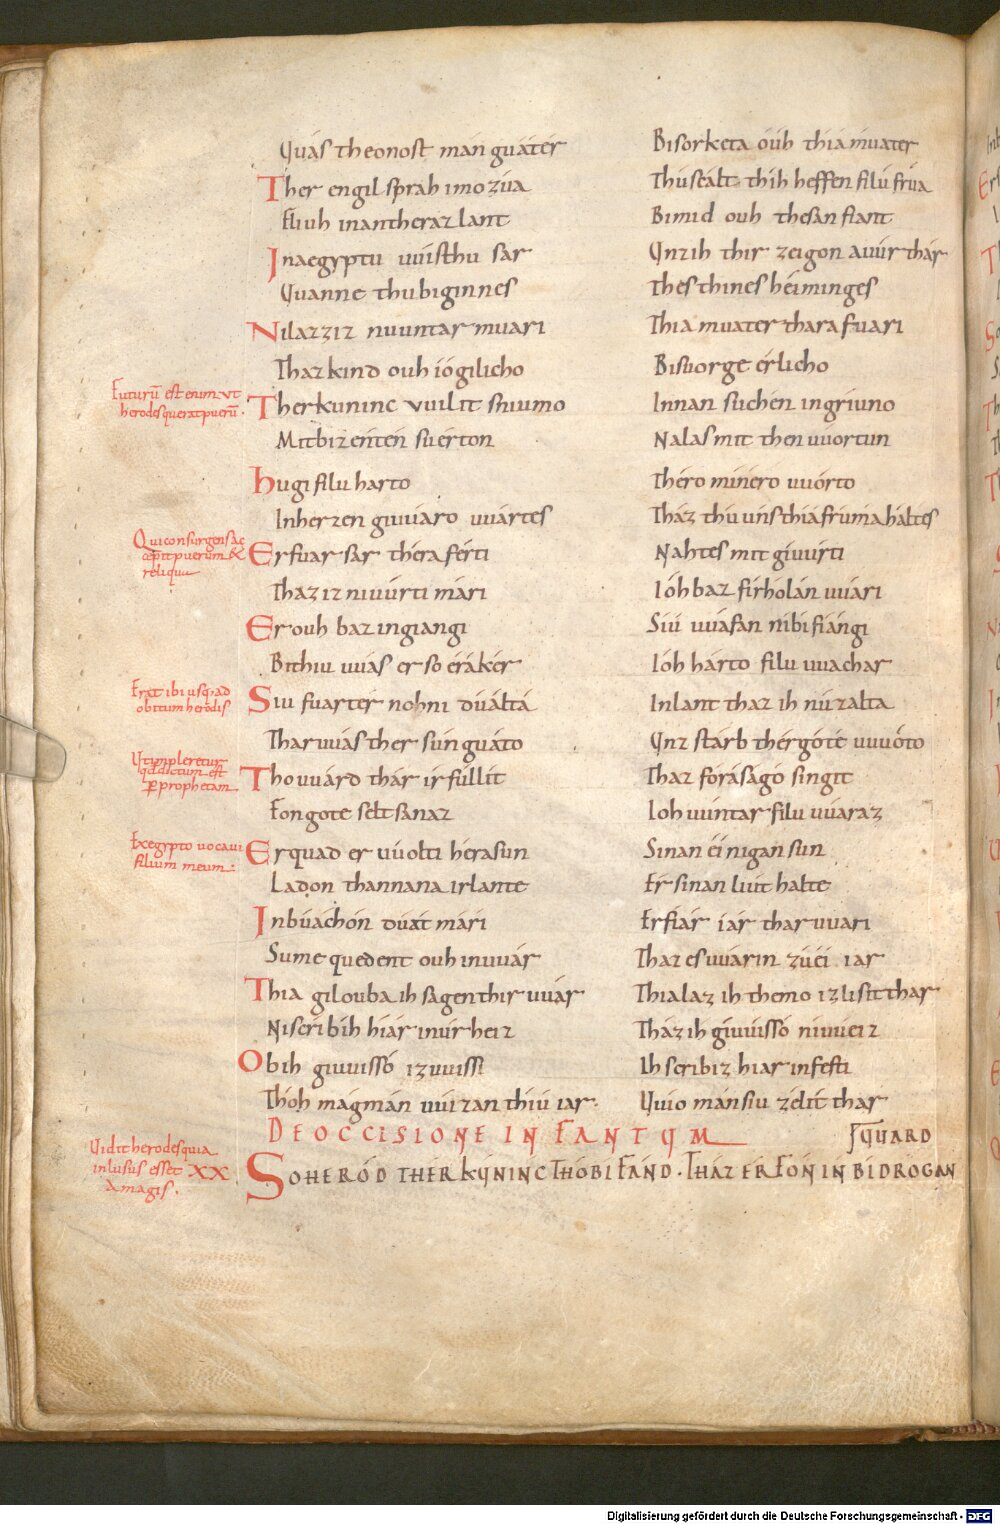 Quás theonost mán guátér Bisorketa óúh thia múater
Ther engil sprah imo zúa Thu scált thih heffen filú frúa
Fliuh inan theraz lant Bimid ouh thesan fiant
In aegyptu uuis thu sár Unz ih thir zeigon auúr thár
Quanne thu biginnes Thes thines héiminges
Ni laz ziz nuuuntar muari Thia muater thara fuari
Thaz kind ouh ió gilicho Bisuorge érlicho
Futurū est enim ut
herodes querat puerū.
Ther kuninc vuilit sniumo Innan suchén in griuno
Mit bizentén suérton Nalas mit then uuortun
Hugi filu harto Théro minéro uuórto
In herzen giuuaro uuártes Tház thu uns thia fruma háltes
Qui consurgens ac
cepit puerum &
reliqua
Er fuar sár théra férti Nahtes mit giuúrti
Thaz iz ni uuúrti mári Ióh baz firholán uuári
Er ouh baz ingiangi Siú uuáfan nibi fiángi
Bithiu uuás er so éráker Ióh hárto filu uuachar
Erat ibi usq. ad
obitum herodis
Siu fuar tér noh ni duáltá In lant thaz ih nú zalta
Thar uuás ther sún guáto Unz stárb thér góté uuuóto
Ut impleretur
qd dictum est
p prophetam.
Tho uuárd thár irfúllit Thaz foraságo singit
Fon gote selt sanaz Ioh uuntar filu uuaraz
Ex egypto uocaui
filium meum.
Er quad er uuolti herasun Sinan éinigan sun
Ladon thannana ir lante Er sinan liut halte
In búachón duat mári Er fiár iár thar uuari
Sume quedent ouh in uuár Thaz es uuárin zuéi iar
Thia gilouba ih sagen thir uuár Thia laz ih themo iz lisit thar
Ni scribih hiár in úr heiz Tház ih giuuissó ni uueiz
Ob ih giuuissó iz uuissi Ih scribiz hiar in festi
Thóh mag mán uuizan thiú iár. Uuio mán siu zelit thar
DE OCCISIONE INFANTUM
UUARD
Uidit herodes quia
inlusus esset XX
a magis.
SO HERÓD THER KUNINC THO BIFAND. THAZ ER FON IN BIDROGAN
Digitalisierung gefördert durch die Deutsche Forschungsgemeinschaft - DFG